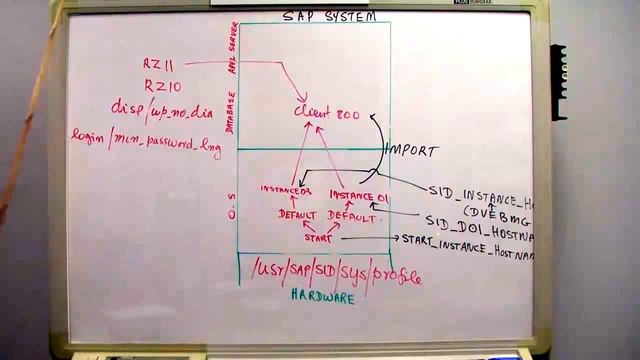 SAP SYSTEM
DATABASE APPL SERVER
RZ11
RZ10
disp/wp_no_dia
login/min_password_lng
Client 800
IMPORT
O.S
INSTANCE 03
INSTANCE 01
DEFAULT
DEFAULT.
START
SID_INSTANCE_H
(DVEBMG
SID_D01_HOSTNA
START_INSTANCE_HOSTNA
/usr/SAP/SID/SYS/profile
HARDWARE